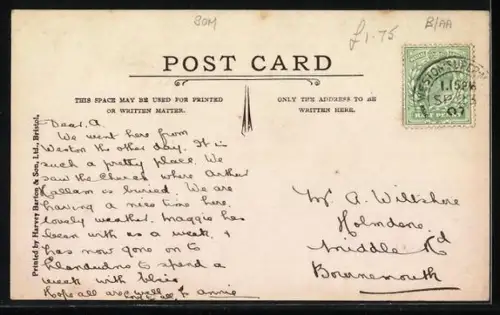 BOM
£1.75
B/AA
POST CARD
THIS SPACE MAY BE USED FOR PRINTED
OR WRITTEN MATTER.
ONLY THE ADDRESS TO BE
WRITTEN HERE.
Printed by Harvey Barton & Son, Ltd., Bristol.
Dear A
We went here from
Weston the other day. It is
such a pretty place. We
saw the Church where Arthur
Hallam is buried. We are
having a nice time here,
lovely weather. Maggie has
been with us a week, &
has now gone on to
Llandudno to spend a
week with
Hope all are well
love to all fr Annie
Mr A. Wiltshire
Holmdene
Middle Rd
Bournemouth
WESTON-SUPER
1.15PM
SP 23
07
HALF PENNY